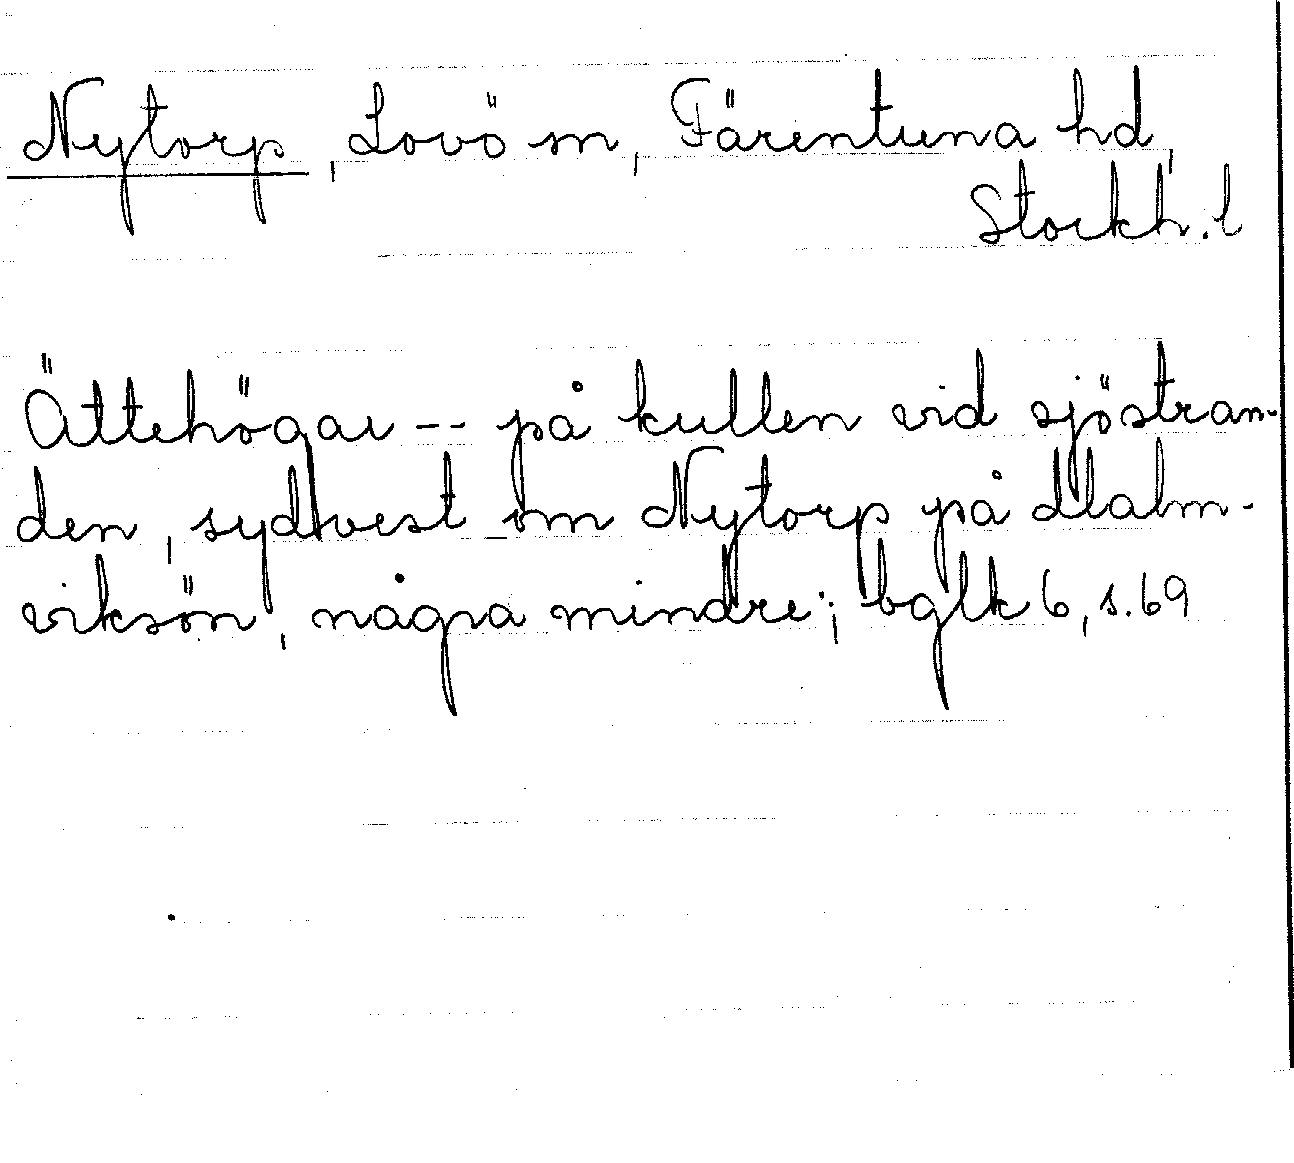 Nytorp, Lovö sn, Färentuna hd,
Stockh. l
Ättehögar -- på kullen vid sjöstran-
den, sydvest om Nytorp på Malm-
viksön, några mindre; bglk 6, s. 69